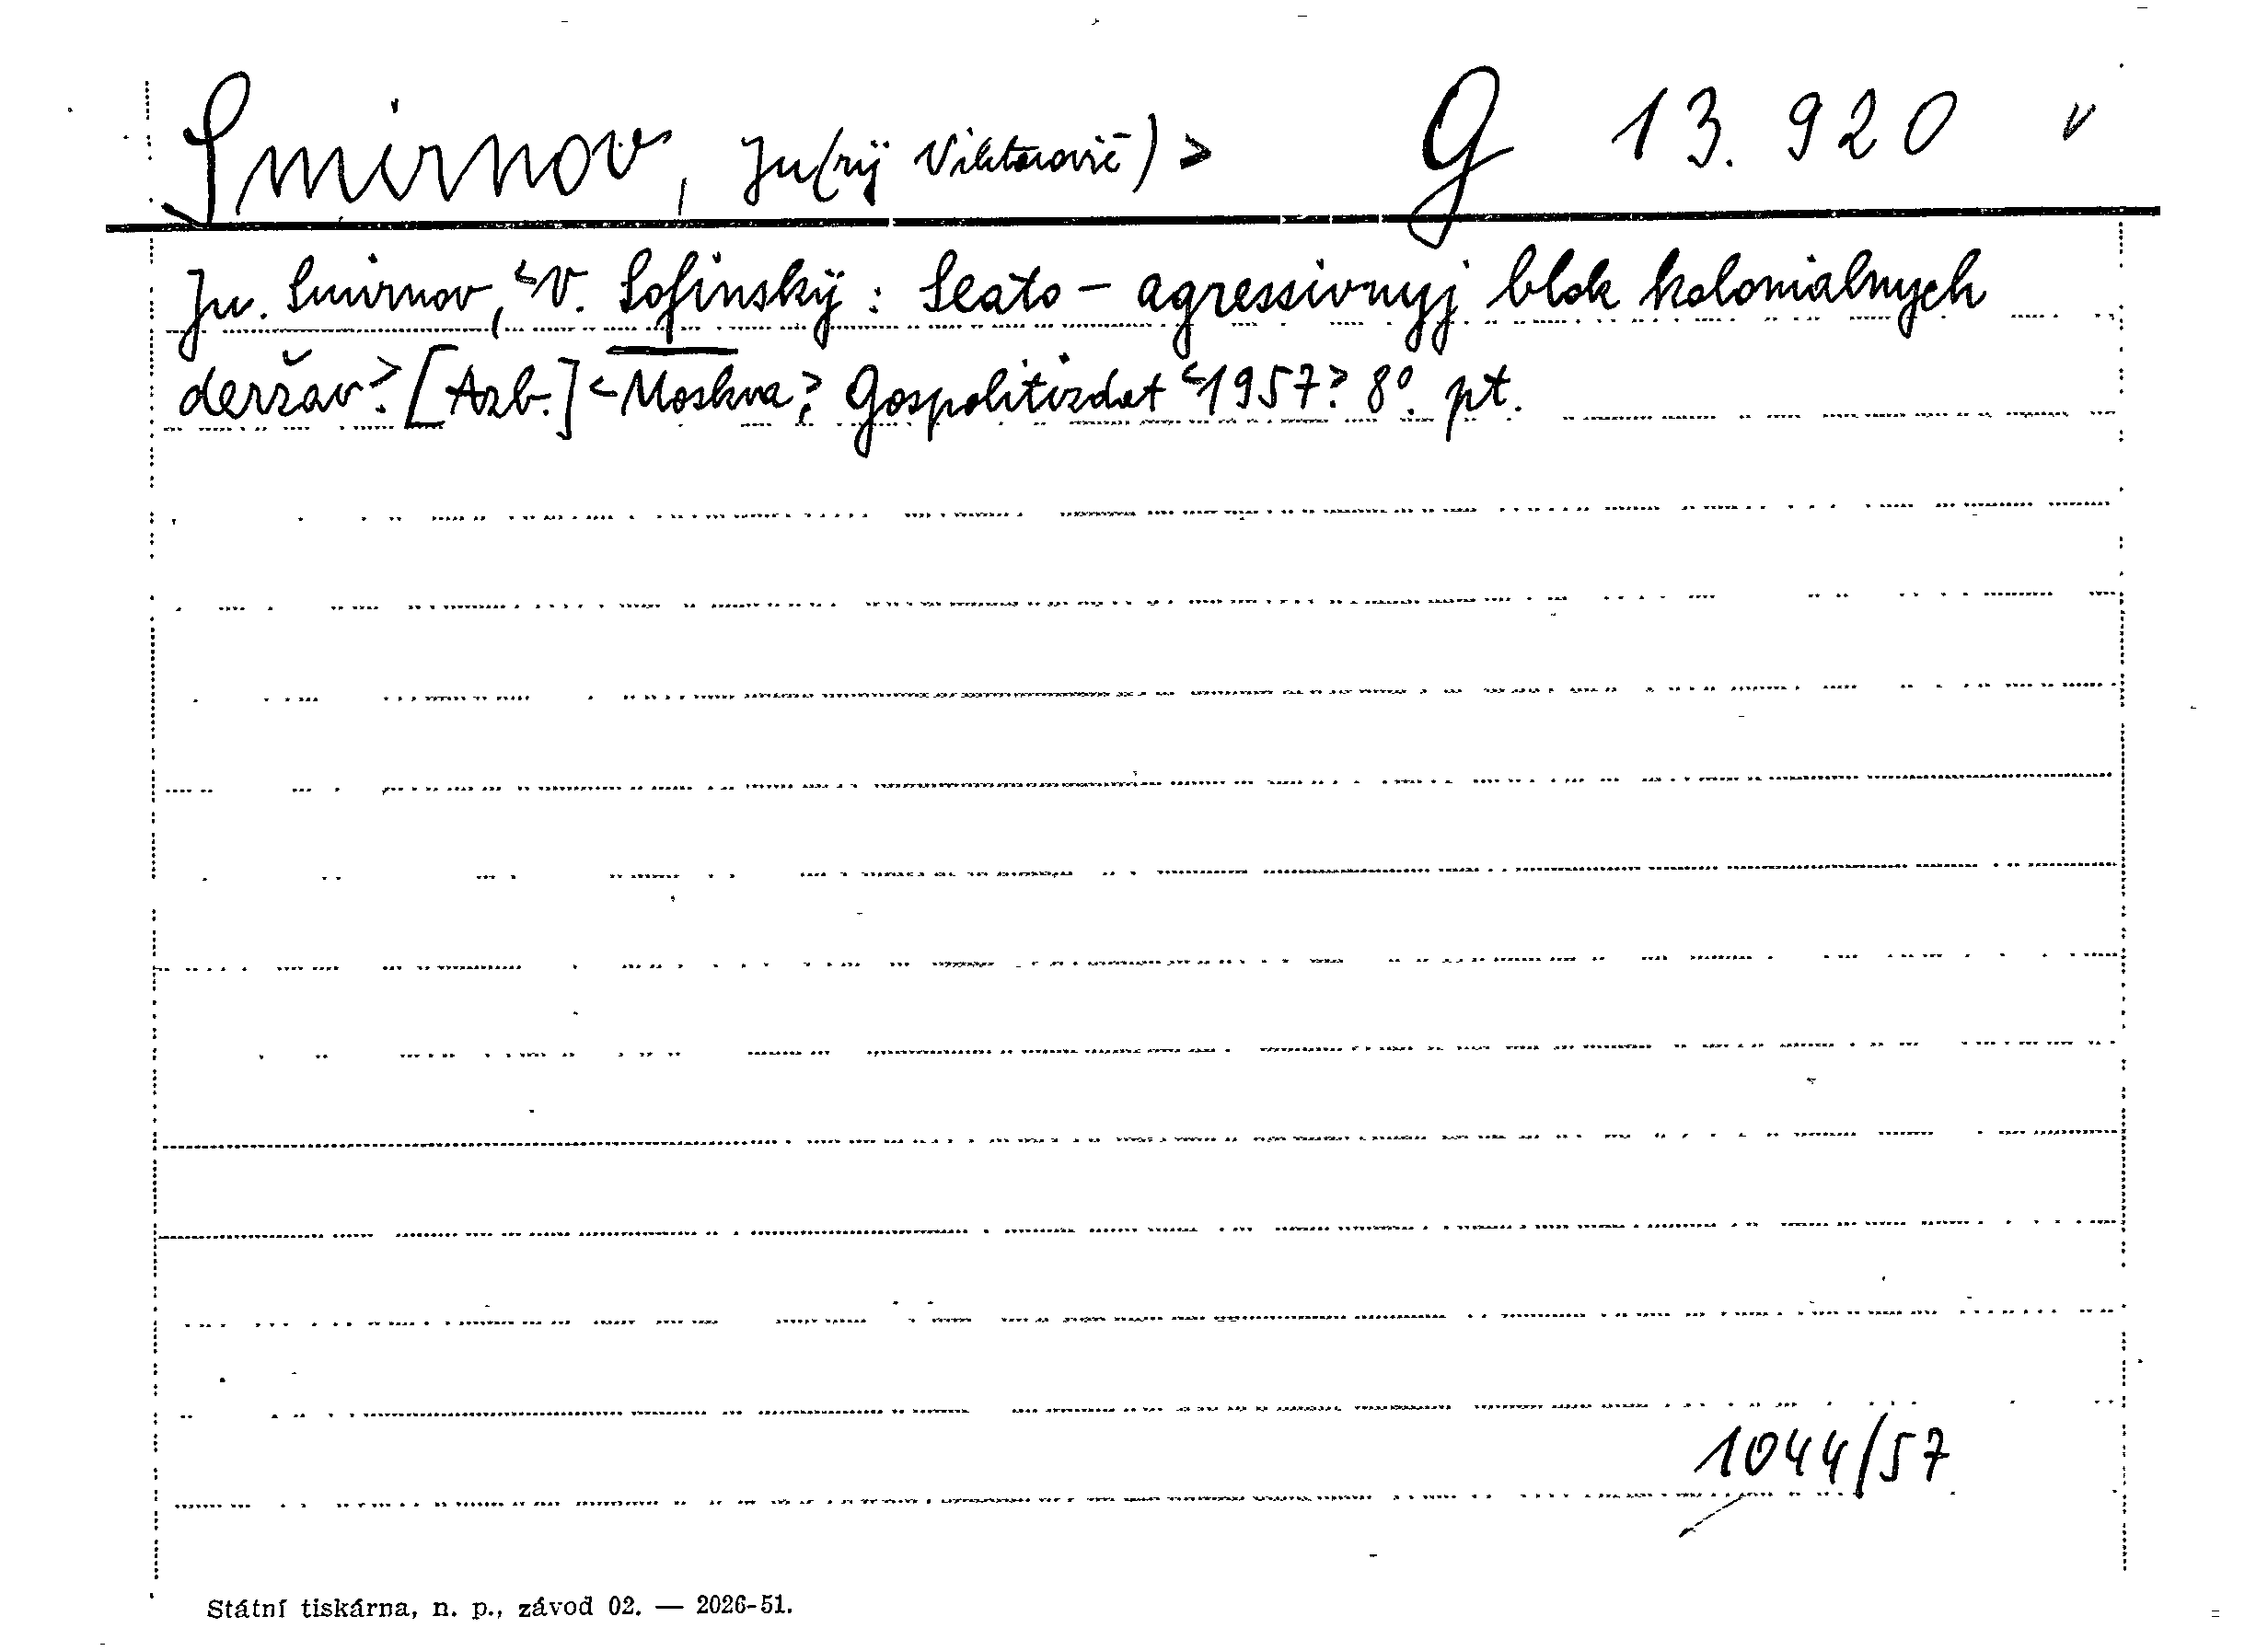 Smirnov, Ju(rij Viktorovič) > G 13.920 v
Ju. Smirnov, <V. Sofinskij : Seato - agressivnyj blok kolonialnych
deržav.> [Azb.] <Moskva,> Gospolitizdat <1957.> 8°. pt.
1044/57
Státní tiskárna, n. p., závod 02. — 2026-51.